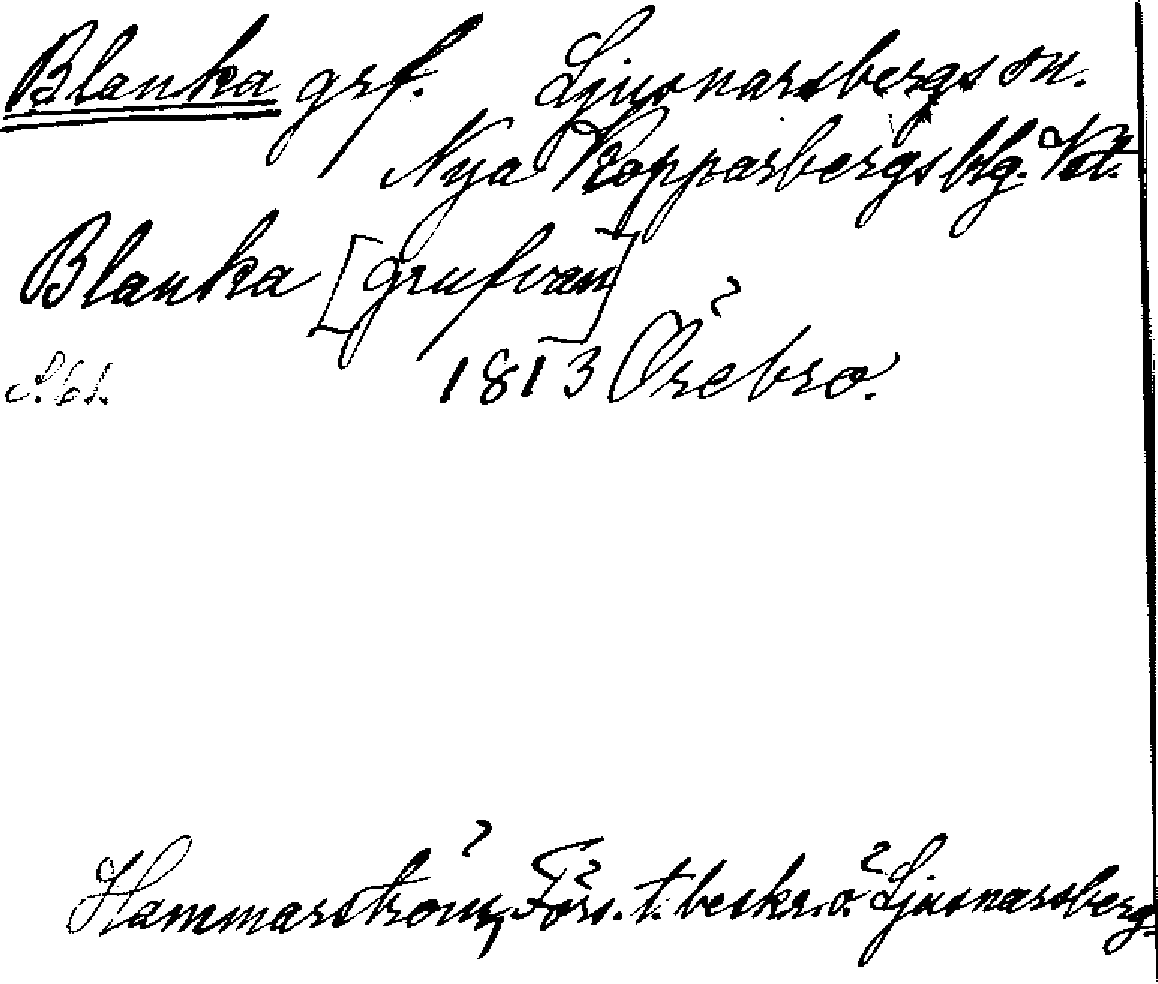 Blanka grf. Ljusnarsbergs sn.
Nya Kopparbergs blg. Vstl.
Blanka [grufvan]
S. 61. 1813 Örebro.
Hammarström, Förs. t. beskr. ö. Ljusnarsberg.